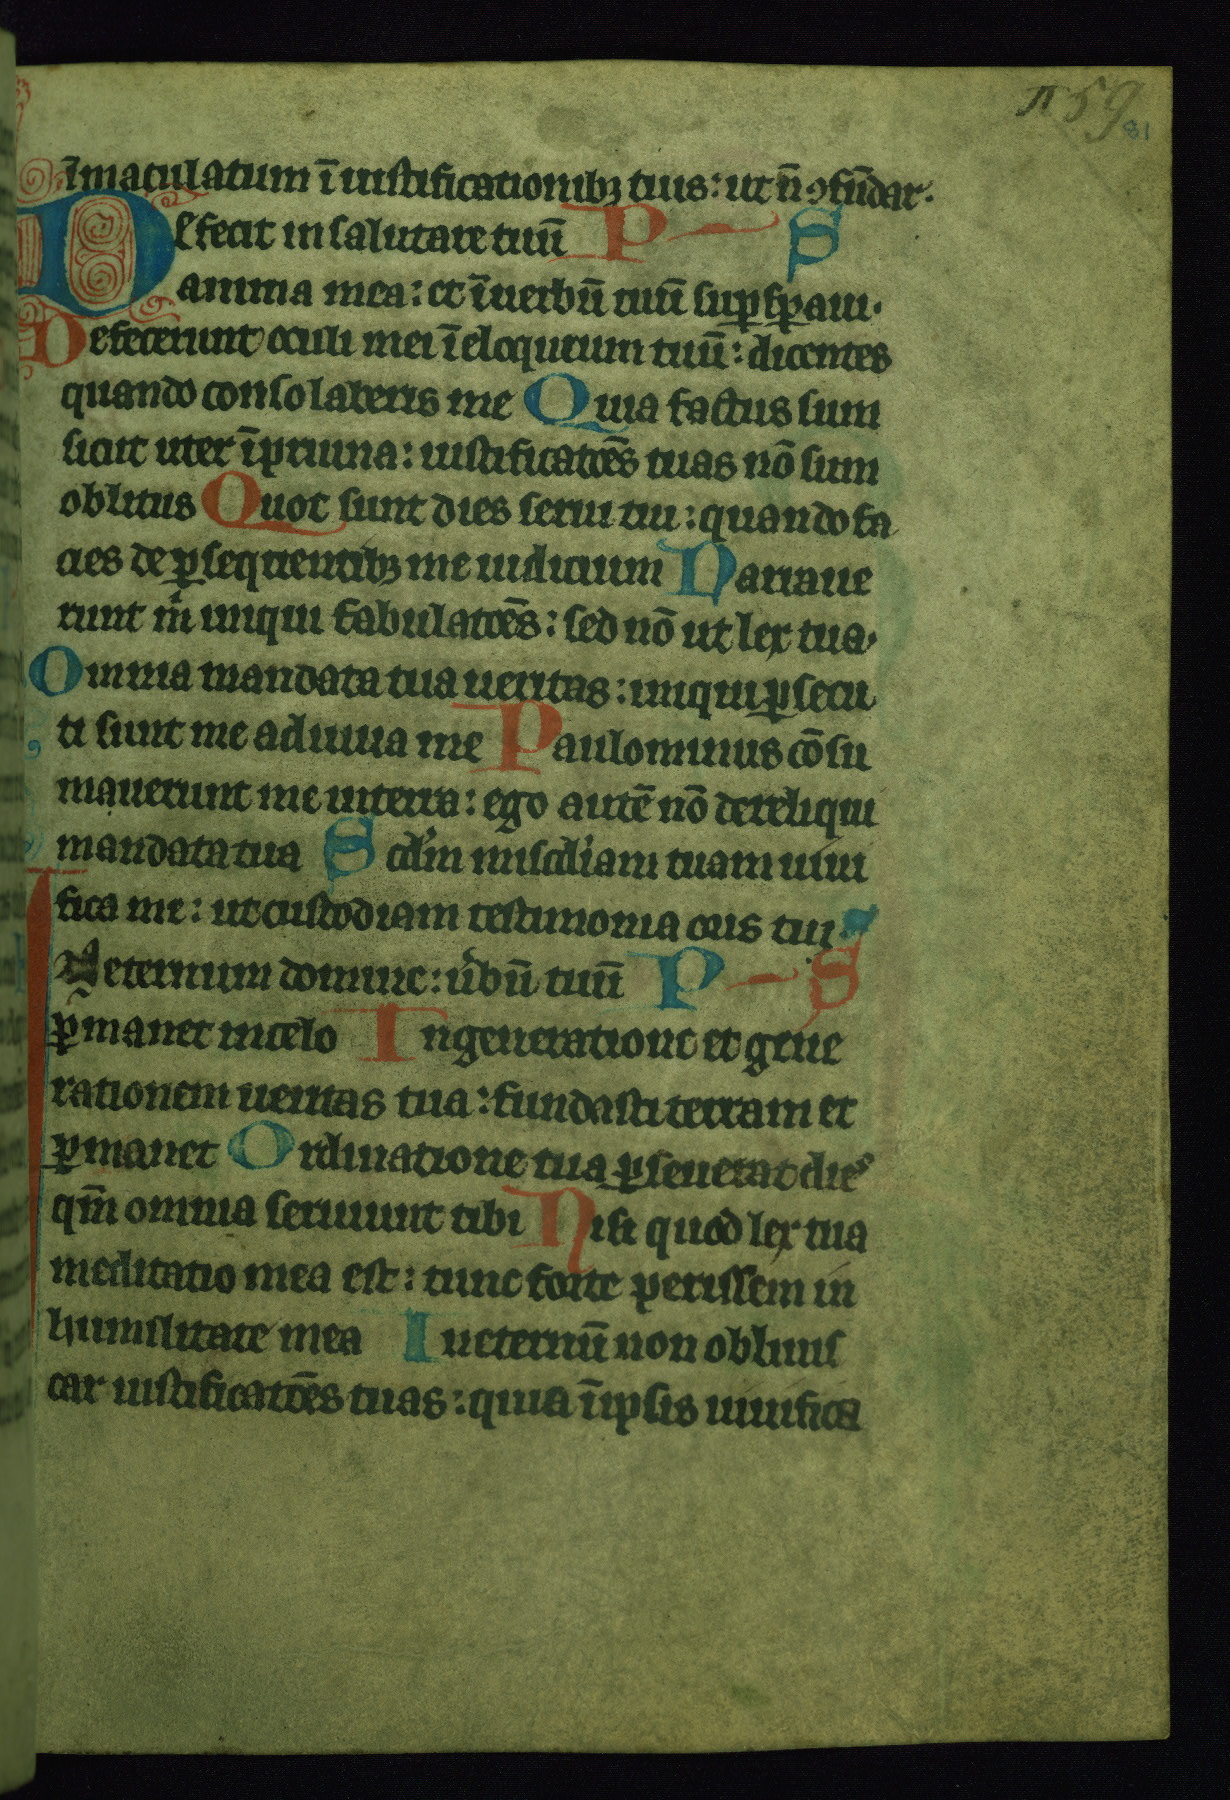 n 59
81
īmaculatum ī iustificationibꝫ tuis: ut n̄ ꝯfūdar.
Defecit in salutare tuū P S
anima mea: et ī uerbū tuū suꝑsꝑaui.
Defecerunt oculi mei ī eloquium tuū: dicentes
quando consolaberis me Quia factus sum
sicut uter ī pruina: iustificatōes tuas nō sum
oblitus Quot sunt dies serui tui: quando fa
cies de ꝑsequentibꝫ me iudicium Narraue
runt m̄ iniqui fabulatōes: sed nō ut lex tua.
Omnia mandata tua ueritas: iniqui ꝑsecu
ti sunt me adiuua me Paulominus cōsu
mauerunt me in terra: ego autē nō dereliqui
mandata tua Scdm miscdiam tuam uiui
fica me: ut custodiam testimonia oris tui. S
In eternum domine: ubū tuū P S
ꝑmanet in celo In generatione et gene
rationem ueritas tua: fundasti terram et
ꝑmanet Ordinatione tua ꝑseuerat dies
qm̄ omnia seruiunt tibi Nisi quod lex tua
meditatio mea est: tunc forte perissem in
humilitate mea In eternū non obliuis
car iustificatōes tuas: quia ī ipsis uiuifica